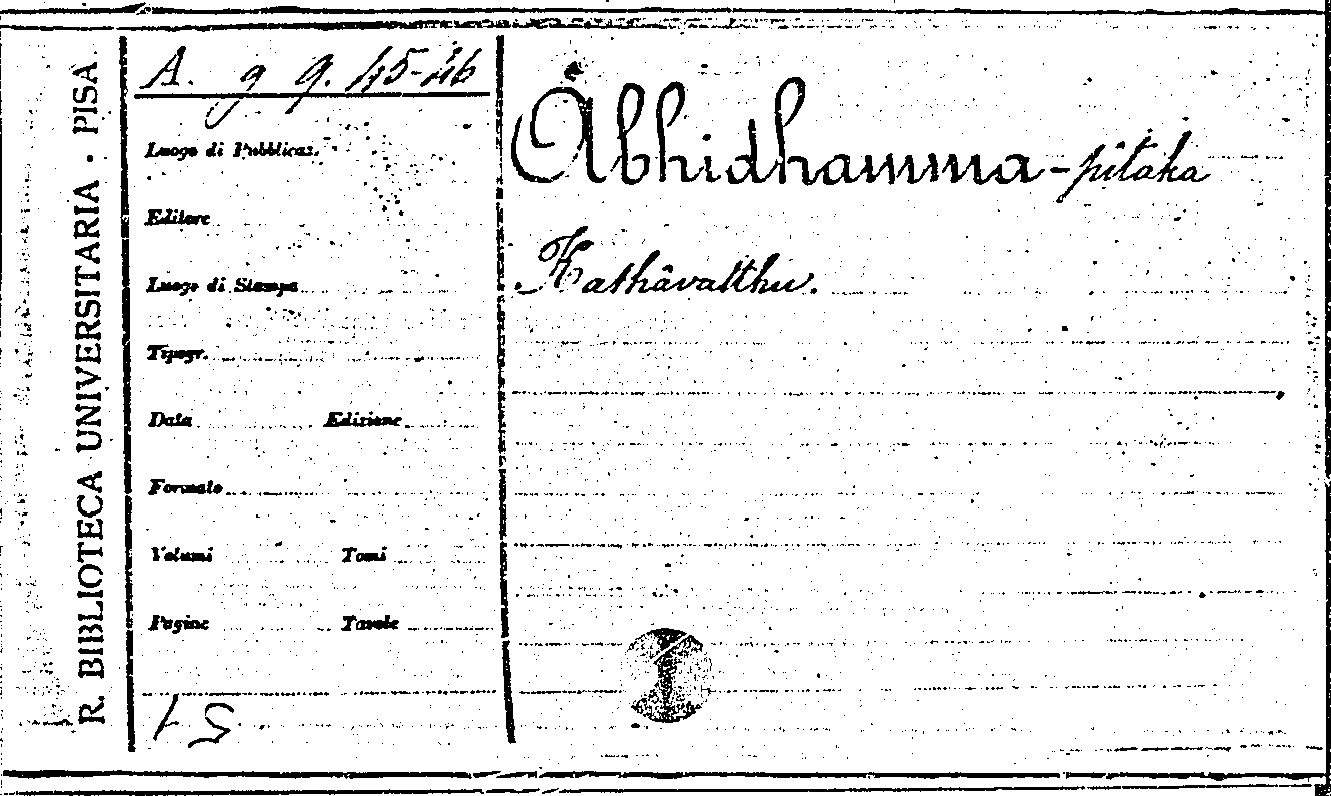 R. BIBLIOTECA UNIVERSITARIA . PISA.
A. g 9. 45-46
Luogo di Pubblicaz.
Editore
Luogo di Stampa
Tipogr.
Data Edizione
Formato
Volumi Tomi
Pagine Tavole
Abhidhamma-pitaka
Kathâvatthu.